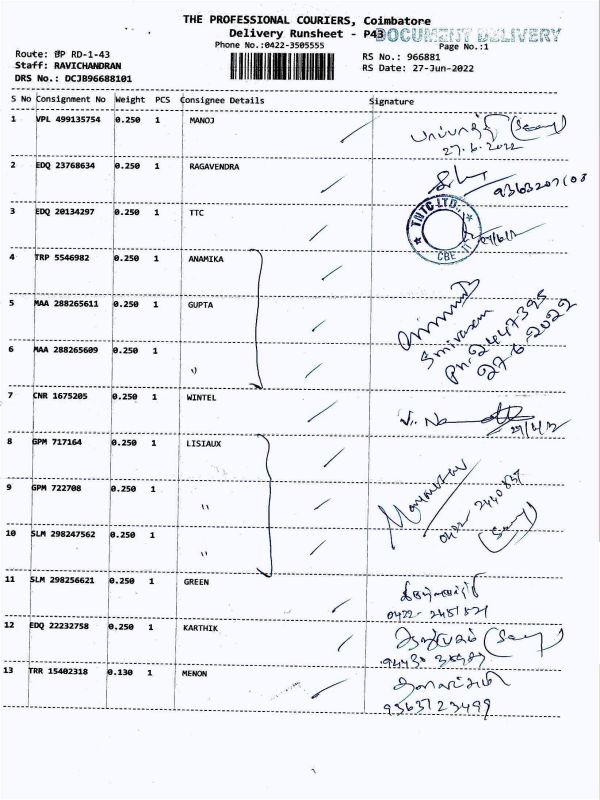 THE PROFESSIONAL COURIERS, Coimbatore
Delivery Runsheet - P43
DOCUMENT DELIVERY
Phone No.:0422-3505555
Page No.:1
Route: UP RD-1-43
RS No.: 966881
Staff: RAVICHANDRAN
RS Date: 27-Jun-2022
DRS No.: DCJB96688101
S No Consignment No Weight PCS Consignee Details Signature
1 VPL 499135754 0.250 1 MANOJ
27.6.2022
2 EDQ 23768634 0.250 1 RAGAVENDRA
3 EDQ 20134297 0.250 1 TTC
TNTC LTD.,
CBE
4 TRP 5546982 0.250 1 ANAMIKA
5 MAA 288265611 0.250 1 GUPTA
Srinivasan
Ph. 2447395
27-6-2022
6 MAA 288265609 0.250 1 〃
7 CNR 1675205 0.250 1 WINTEL
8 GPM 717164 0.250 1 LISIAUX
9 GPM 722708 0.250 1 〃
10 SLM 298247562 0.250 1 〃
11 SLM 298256621 0.250 1 GREEN
12 EDQ 22232758 0.250 1 KARTHIK
13 TRR 15402318 0.130 1 MENON
9363723499